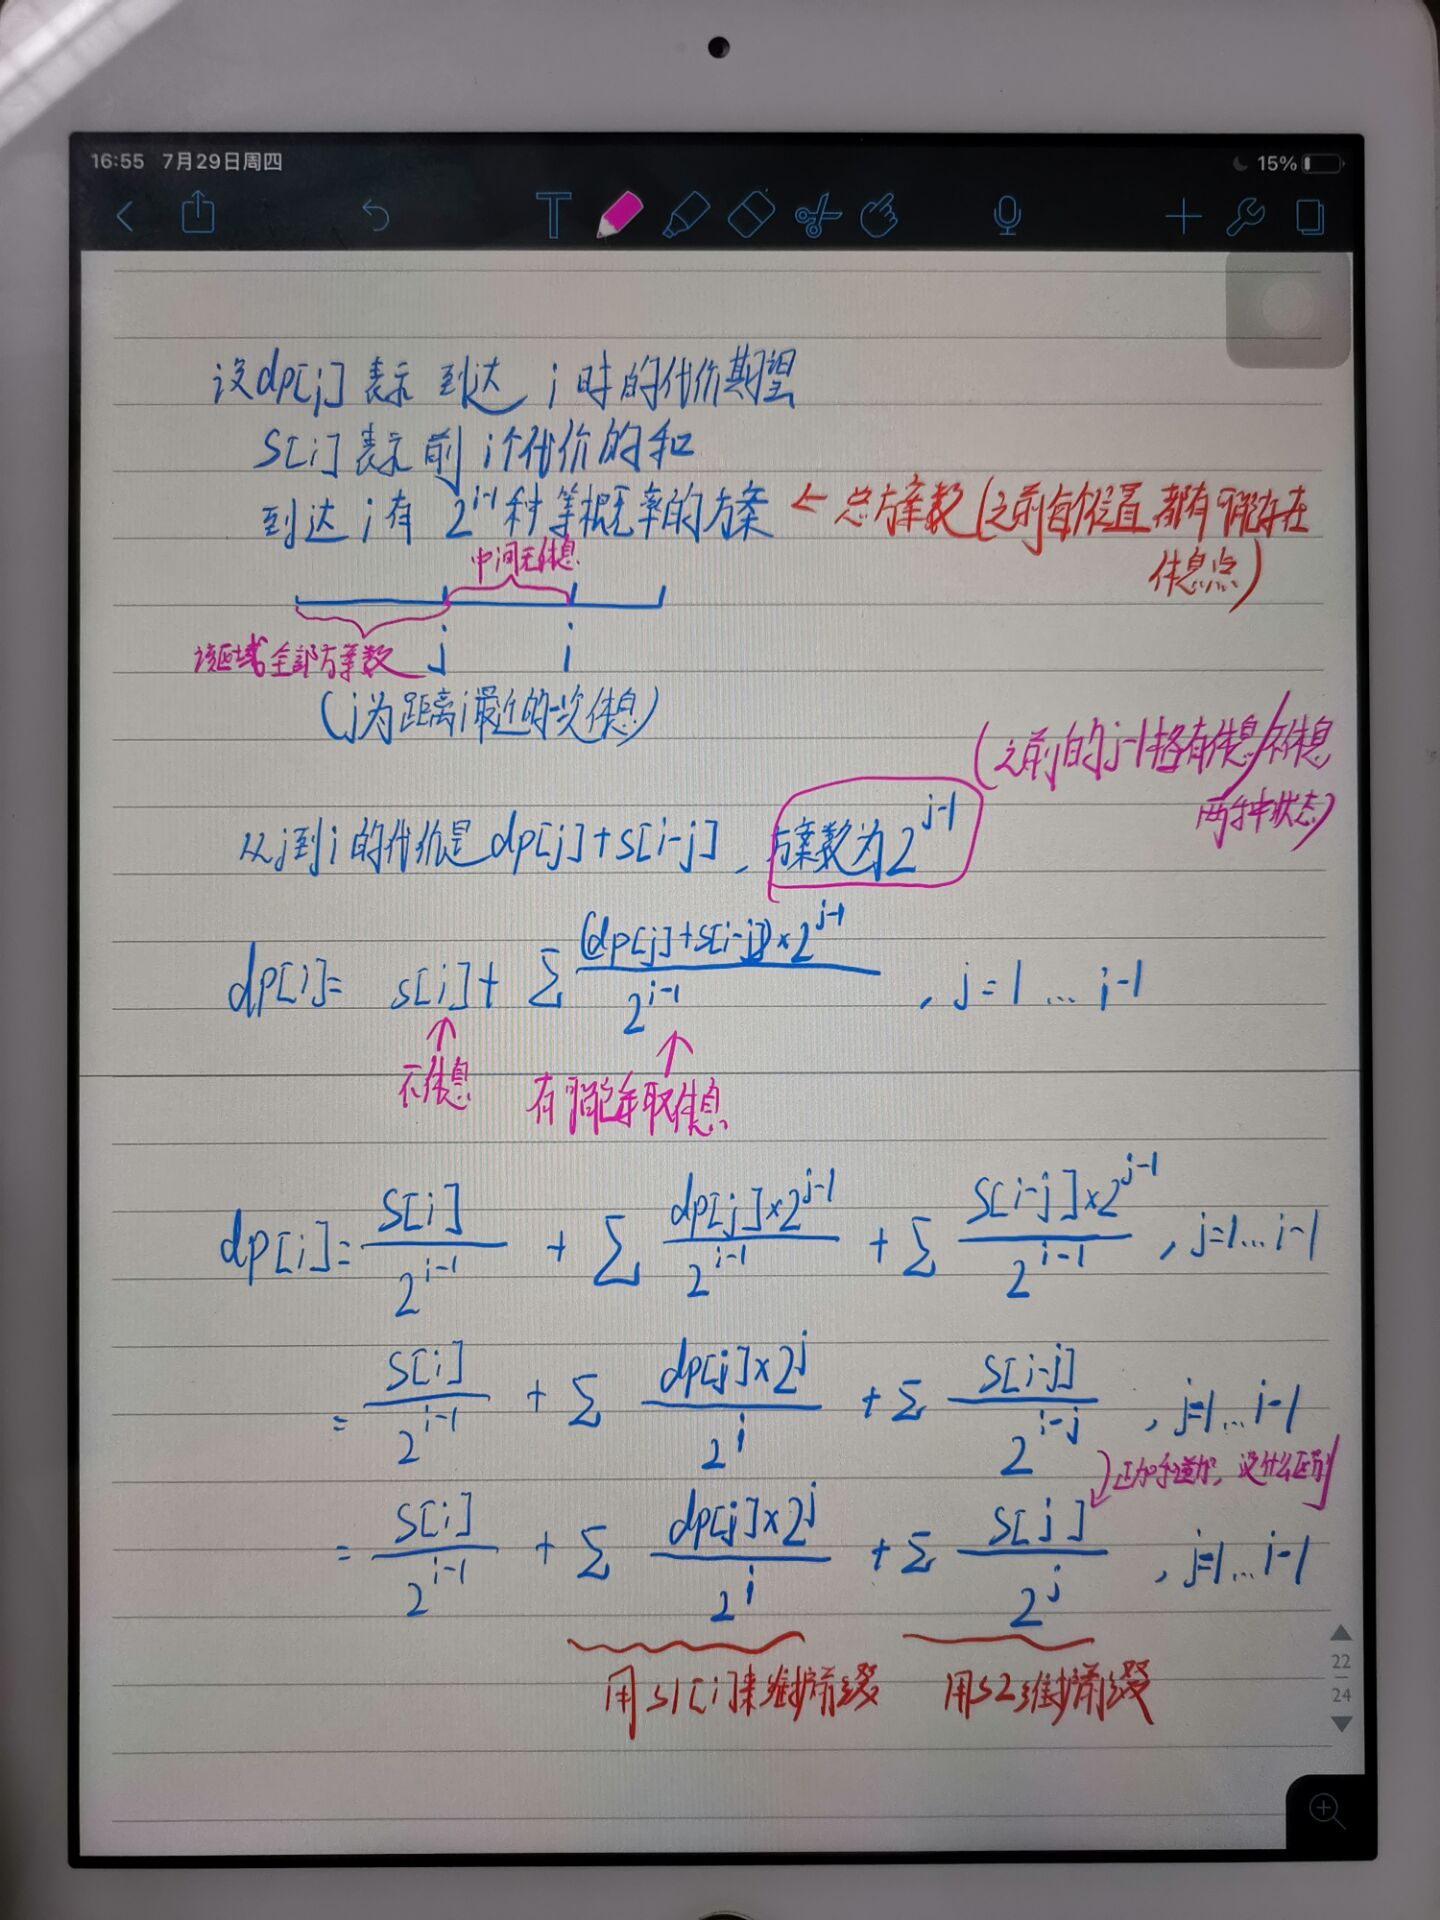 16:55 7月29日周四
15%
设dp[i]表示 到达 i 时的代价期望
S[i]表示 前 i个代价的和
到达 i 有 2^{i-1}种等概率的方案 ← 总方案数(之前每个位置都有可能存在
休息点)
中间无休息
该区域全部方案数 j i
(j为距离i最近的一次休息)
(之前的j-1格有休息/不休息
两种状态)
从j到i的代价是dp[j]+s[i-j]、方案数为2^{j-1}
dp[i]= s[i]+ Σ (dp[j]+s[i-j])×2^{j-1} / 2^{i-1} , j=1...i-1
↑ 不休息 ↑ 有可能采取休息
dp[i]= S[i] / 2^{i-1} + Σ dp[j]×2^{j-1} / 2^{i-1} + Σ S[i-j]×2^{j-1} / 2^{i-1} , j=1...i-1
= S[i] / 2^{i-1} + Σ dp[j]×2^j / 2^i + Σ S[i-j] / 2^{i-j} , j=1...i-1
正加和逆加,没什么区别
= S[i] / 2^{i-1} + Σ dp[j]×2^j / 2^i + Σ S[j] / 2^j , j=1...i-1
用S1[i]来维护前缀 用S2维护前缀
22
24